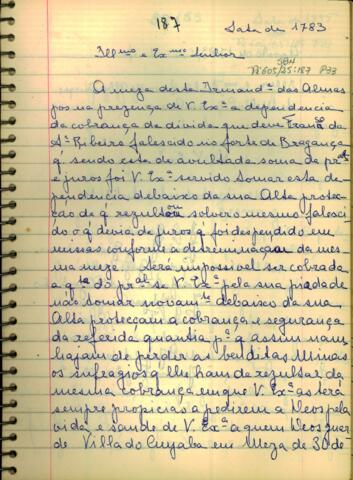 187
Data de 1783
Illmo e Exmo Senhor
187605/25:187 P33
A meza desta Irmande das Almas
pos na prezença de V. Exa a dependencia
da cobrança da divida que deve Franco da
Sa Ribeiro falescido no forte de Bragança
q sendo esta de avultada soma de pral
e juros foi V. Exa servido tomar esta de-
pendencia debaixo da sua Alta prote-
ção de q resultou solver o mesmo falesci
do o q devia de juros q foi despendido em
missas conforme a detreminação da mes
ma meze. Será impossivel ser cobrada
a qta do pral se V. Exa pela sua piadade
não tomar novamte debaixo da sua
Alta protecçam a cobrança e segurança
da referida quantia pa q assim nam
hajam de perder as benditas Almas
os sufragios q lhe ham de rezultar da
mesma cobrança em que V. Exa as terá
sempre propicias a pedirem a Deos pela
vida e saude de V. Exa a quem Deos guar
de Villa do Cuyaba em Meza de 30 de